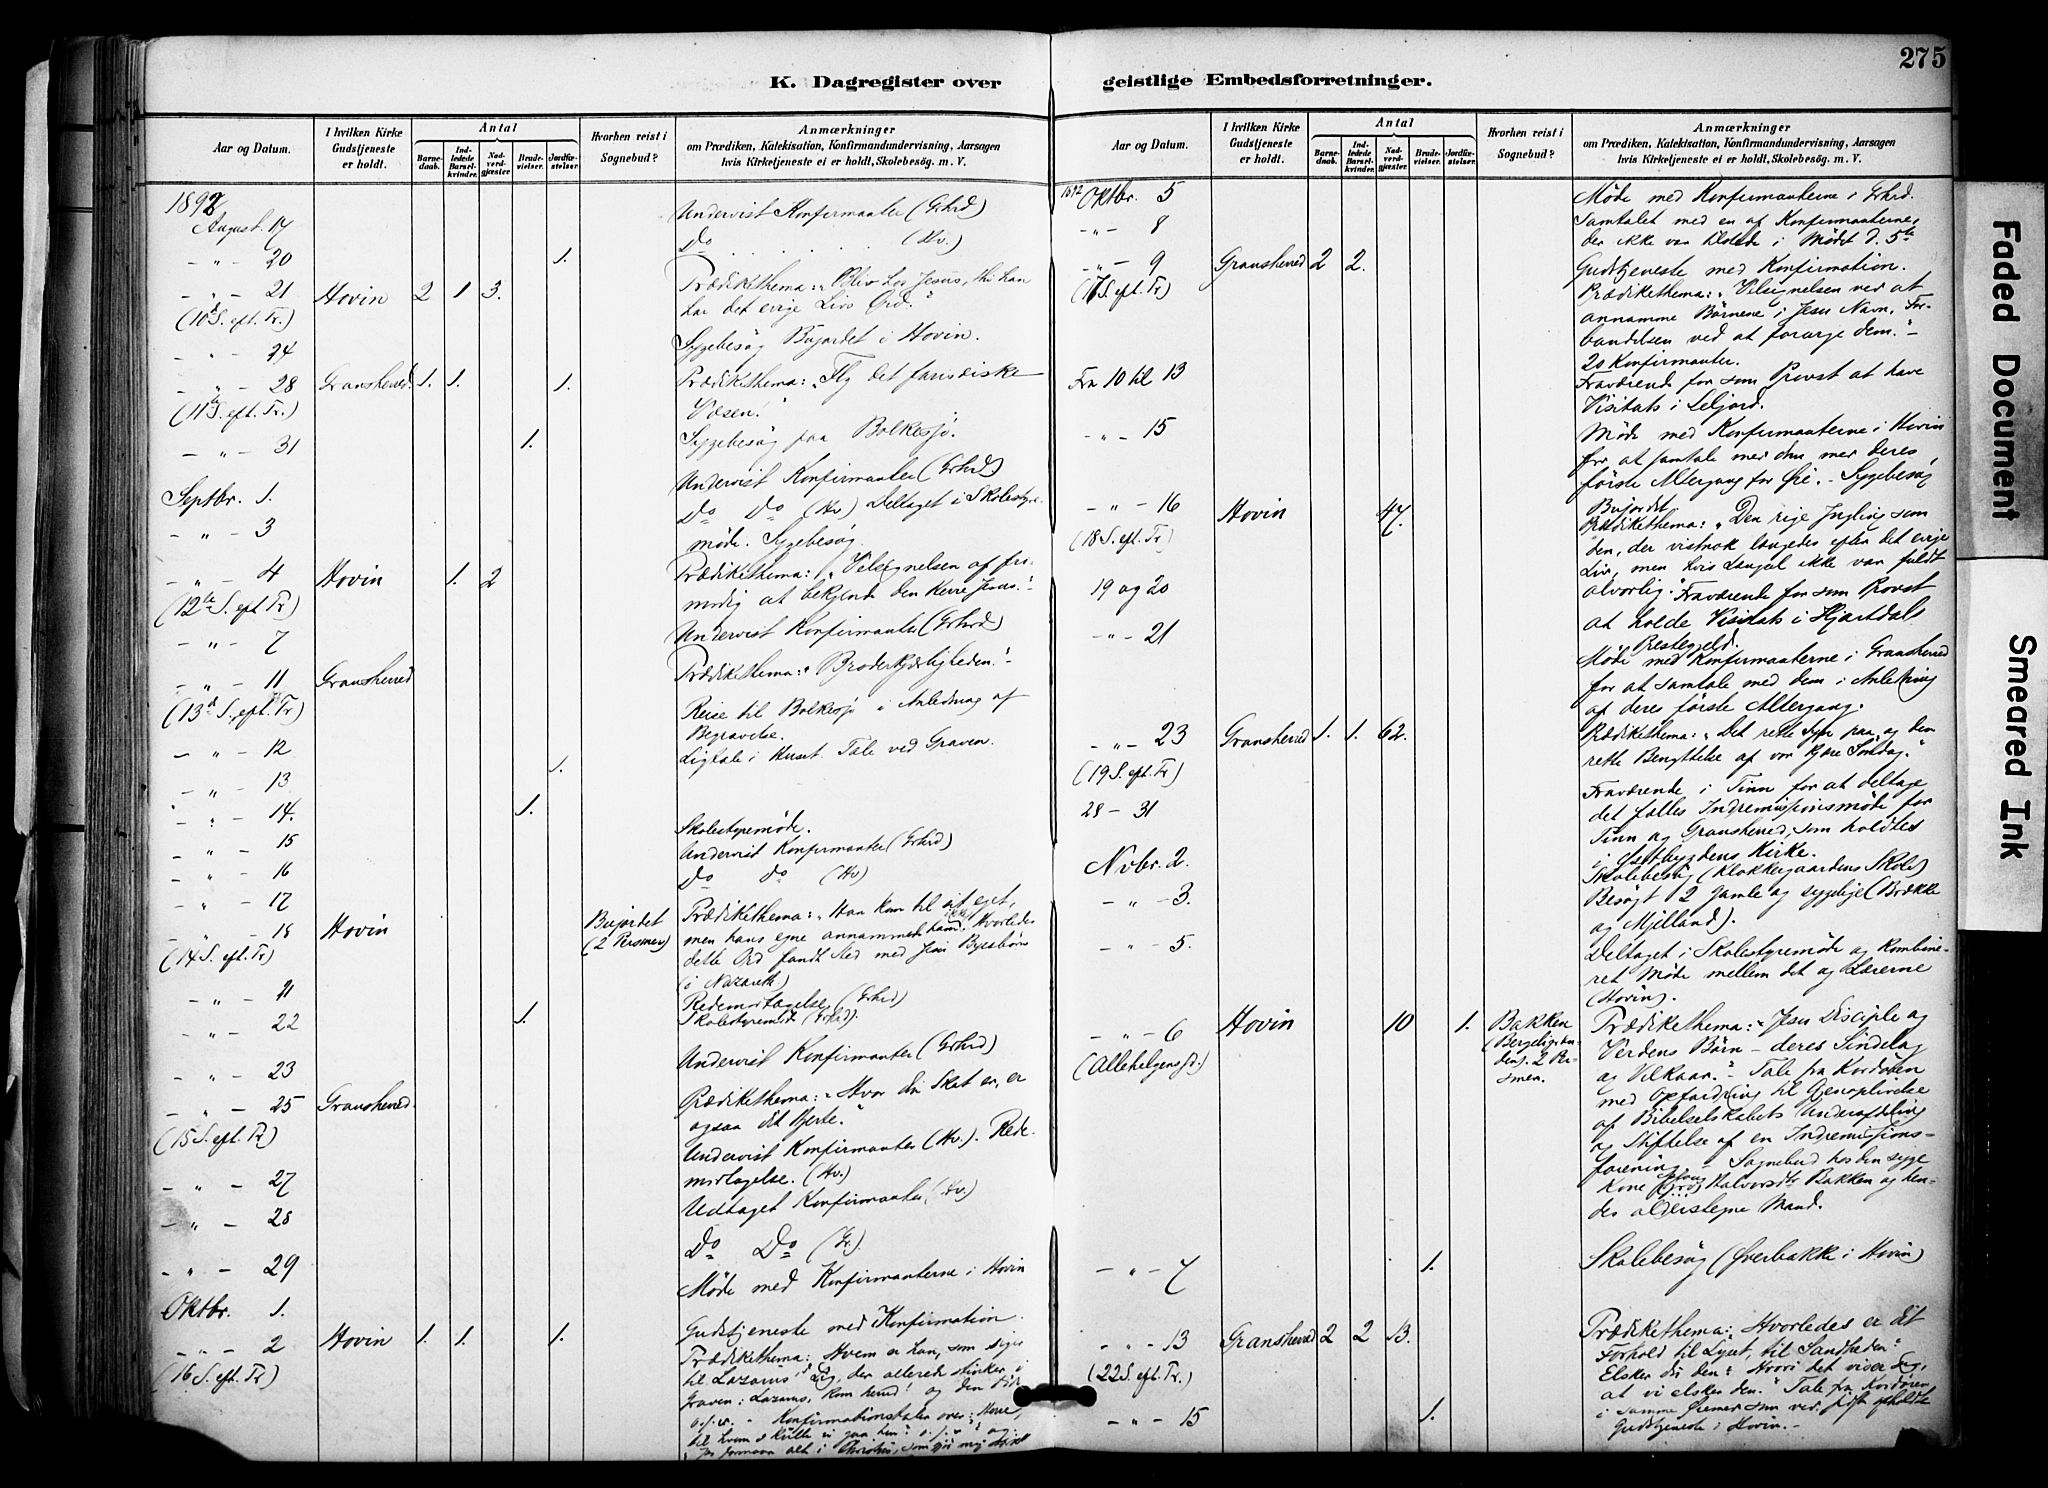 275
K. Dagregister over
geistlige Embedsforretninger.
Aar og Datum.
I hvilken Kirke Gudstjeneste er holdt.
Antal
Barnedaab.
Indledede Barselkvinder.
Nadverdgjæster
Brudevielser.
Jordfæstelser.
Hvorhen reist i Sognebud?
Anmærkninger
om Prædiken, Katekisation, Konfirmandundervisning, Aarsagen
hvis Kirketjeneste ei er holdt, Skolebesøg. m. V.
1892
August. 17 Undervist Konfirmanter (Grhrd)
- " - 20 1. Do (Hv.)
- " - 21 Hovin 2 1 3. Prædikethema: "Bliv hos Jesus, thi han
(10 S. eft. Tr.) har det evige Livs Ord."
- " - 24 Sygebesøg Bujordet i Hovin.
- " - 28 Gransherred. 1. 1. 1. Prædikethema: "Fly det farisæiske
(11te S. eft. Tr.) Væsen."
- " - 31 1. Sygebesøg paa Bolkesjø.
Septbr. 1. Undervist Konfirmanter (Grhrd.)
- " - 3 Do Do (Hv) Deltaget i Skolestyre-
møde. Sygebesøg.
- " - 4 Hovin 1. 2 Prædikethema: "Velsignelsen af fri-
(12te S. eft Tr) modig at bekjende den Herre Jesus."
- " - 7 Undervist Konfirmanter (Grhrd)
- " - 11 Gransherred Prædikethema: "Broderkjærligheden."
(13d S. eft. Tr)
- " - 12 Reise til Bolkesjø i Anledning af
Begravelse.
- " - 13 1. Ligtale i Huset. Tale ved Graven.
- " - 14. 1.
- " - 15 Skolestyremøde.
- " - 16 Undervist Konfirmanter (Grhrd)
- " - 17 Do do (Hv)
- " - 18 Hovin Bujordet (2 Personer) Prædikethema: "Han kom til sit eget,
(14 S. eft. Tr) men hans egne annammede ham ikke." Hvorledes
dette Ord fandt Sted med Jesu Bysbørn
(i Nazareth)
- " - 21 Redemodtagelse (Grhrd)
- " - 22 1. Skolestyremøde (Grhrd).
- " - 23 Undervist Konfirmanter (Grhrd)
- " - 25 Gransherred. Prædikethema: "Hvor din Skat er, er
(15 S. eft. Tr) ogsaa dit Hjerte."
- " - 27 Undervist Konfirmanter (Hv). Rede-
modtagelse. (Hv.)
- " - 28 Udtaget Konfirmanter (Hv.)
- " - 29 Do Do (Gr.)
Oktbr. 1. Møde med Konfirmanterne i Hovin
- " - 2 Hovin 1. 1. 1. Gudstjeneste med Konfirmation.
(16 S. eft. Tr) Prædikethema: Hvem er han, som siger
til Lazarus' Lig, der allerede stinker i
Graven: Lazarus, kom herud! og den døde
o.s.v. - Konfirmationstalen over: Herre,
til hvem skulle vi gaa hen? o.s.v. og
Jeg formaar alt i Christus, som gjør mig stærk
Aar og Datum.
I hvilken Kirke Gudstjeneste er holdt.
Antal
Barnedaab.
Indledede Barselkvinder.
Nadverdgjæster
Brudevielser.
Jordfæstelser.
Hvorhen reist i Sognebud?
Anmærkninger
om Prædiken, Katekisation, Konfirmandundervisning, Aarsagen
hvis Kirketjeneste ei er holdt, Skolebesøg. m. V.
1892 Oktbr. 5 Møde med Konfirmanterne i Grhrd.
- " - 8 Samtalet med en af Konfirmanterne,
der ikke var tilstede i Mødet d. 5te
- " - 9 Gransherred 2 2. Gudstjeneste med Konfirmation.
(17 S. eft. Tr) Prædikethema: "Velsignelsen ved at
annamme Børnene i Jesu Navn, For-
bandelsen ved at forarge dem."
20 Konfirmanter.
Fra 10 til 13 Fraværende for som Provst at have
Visitats i Seljord.
- " - 15 Møde med Konfirmanterne i Hovin
for at samtale med dem med deres
første Altergang for Øie. - Sygebesøg
Bujordet
- " - 16 Hovin 47. Prædikethema: "Den rige Yngling som
(18 S. eft. Tr) den, der vistnok længedes efter det evige
Liv, men hvis Længsel ikke var fuldt
alvorlig."
19 og 20 Fraværende for som Provst
at holde Visitats i Hjartdals
Præstegjeld.
- " - 21 Møde med Konfirmanterne i Gransherred
for at samtale med dem i Anledning
af deres første Altergang.
- " - 23 Gransherred 1. 1. 62. Prædikethema: "Det rette Syn paa, og den
(19 S. eft. Tr) rette Benyttelse af vor kjære Søndag."
28 - 31 Fraværende i Tinn for at deltage
det fælles Indremissionsmøde for
Tinn og Gransherred, som holdtes
i Østbygdens Kirke.
Novbr. 2. Skolebesøg (Klokkergaardens Skole)
- " - 3. Besøgt 2 gamle og sygelige (Brække
og Mjelland).
- " - 5. Deltaget i Skolestyremøde og kombine-
ret Møde mellem det og Lærerne
(Hovin).
- " - 6 Hovin 10 1. Bakken 2 Per-
soner. Prædikethema: "Jesu Disciple og
(Allehelgensd.) Verdens Børn - deres Sindelag
og Vilkaar." - Tale fra Kordøren
med Opfordring til Gjenoplivelse
af Bibelselskabets Underafdeling
og Stiftelse af en Indremissions-
forening. - Sognebud hos den syge
Kone Halvorsdtr Bakken og hen-
des alderstegne Mand.
- " - 7 1. Skolebesøg (Øverbakke i Hovin)
- " - 13 Gransherred 2 2 13. Prædikethema: Hvorledes er dit
(22 S. eft. Tr.) Forhold til Lyset, til Sandheden?
Elsker du den? Hvori det viser sig,
at vi elsker den." Tale fra Kordøren
- " - 15 1. i samme Øiemed som ved sidst afholdte
Gudstjeneste i Hovin. -
Faded Document
Smeared Ink